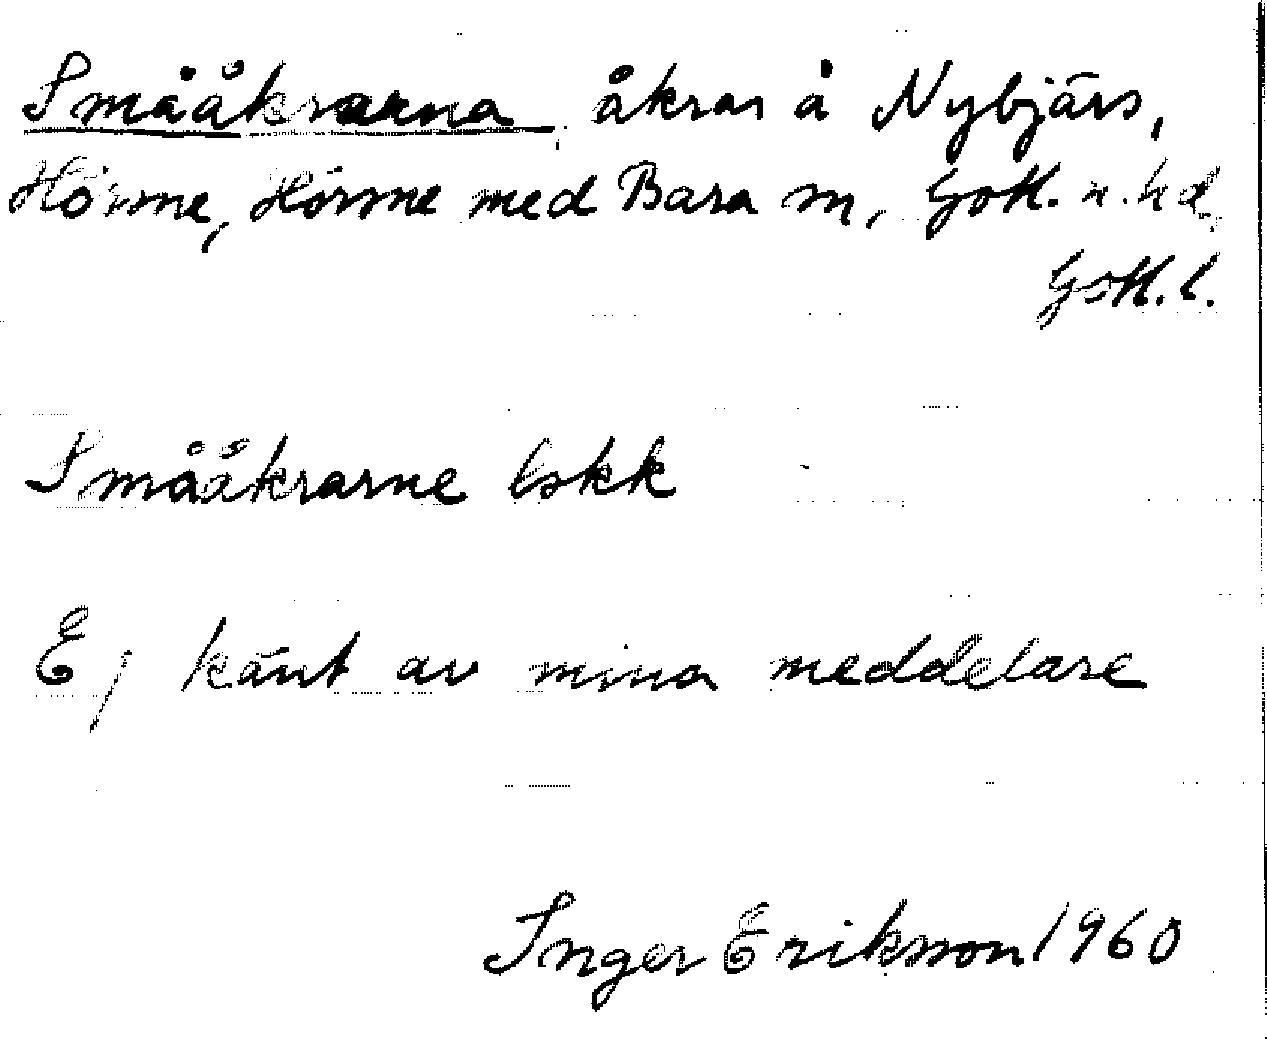 Smååkrarna åkrar å Nybjärs,
Hörsne, Hörsne med Bara sn, Gotl. n. hd
Gotl. l.
Smååkrarne lskk
Ej känt av mina meddelare
Inger Eriksson 1960